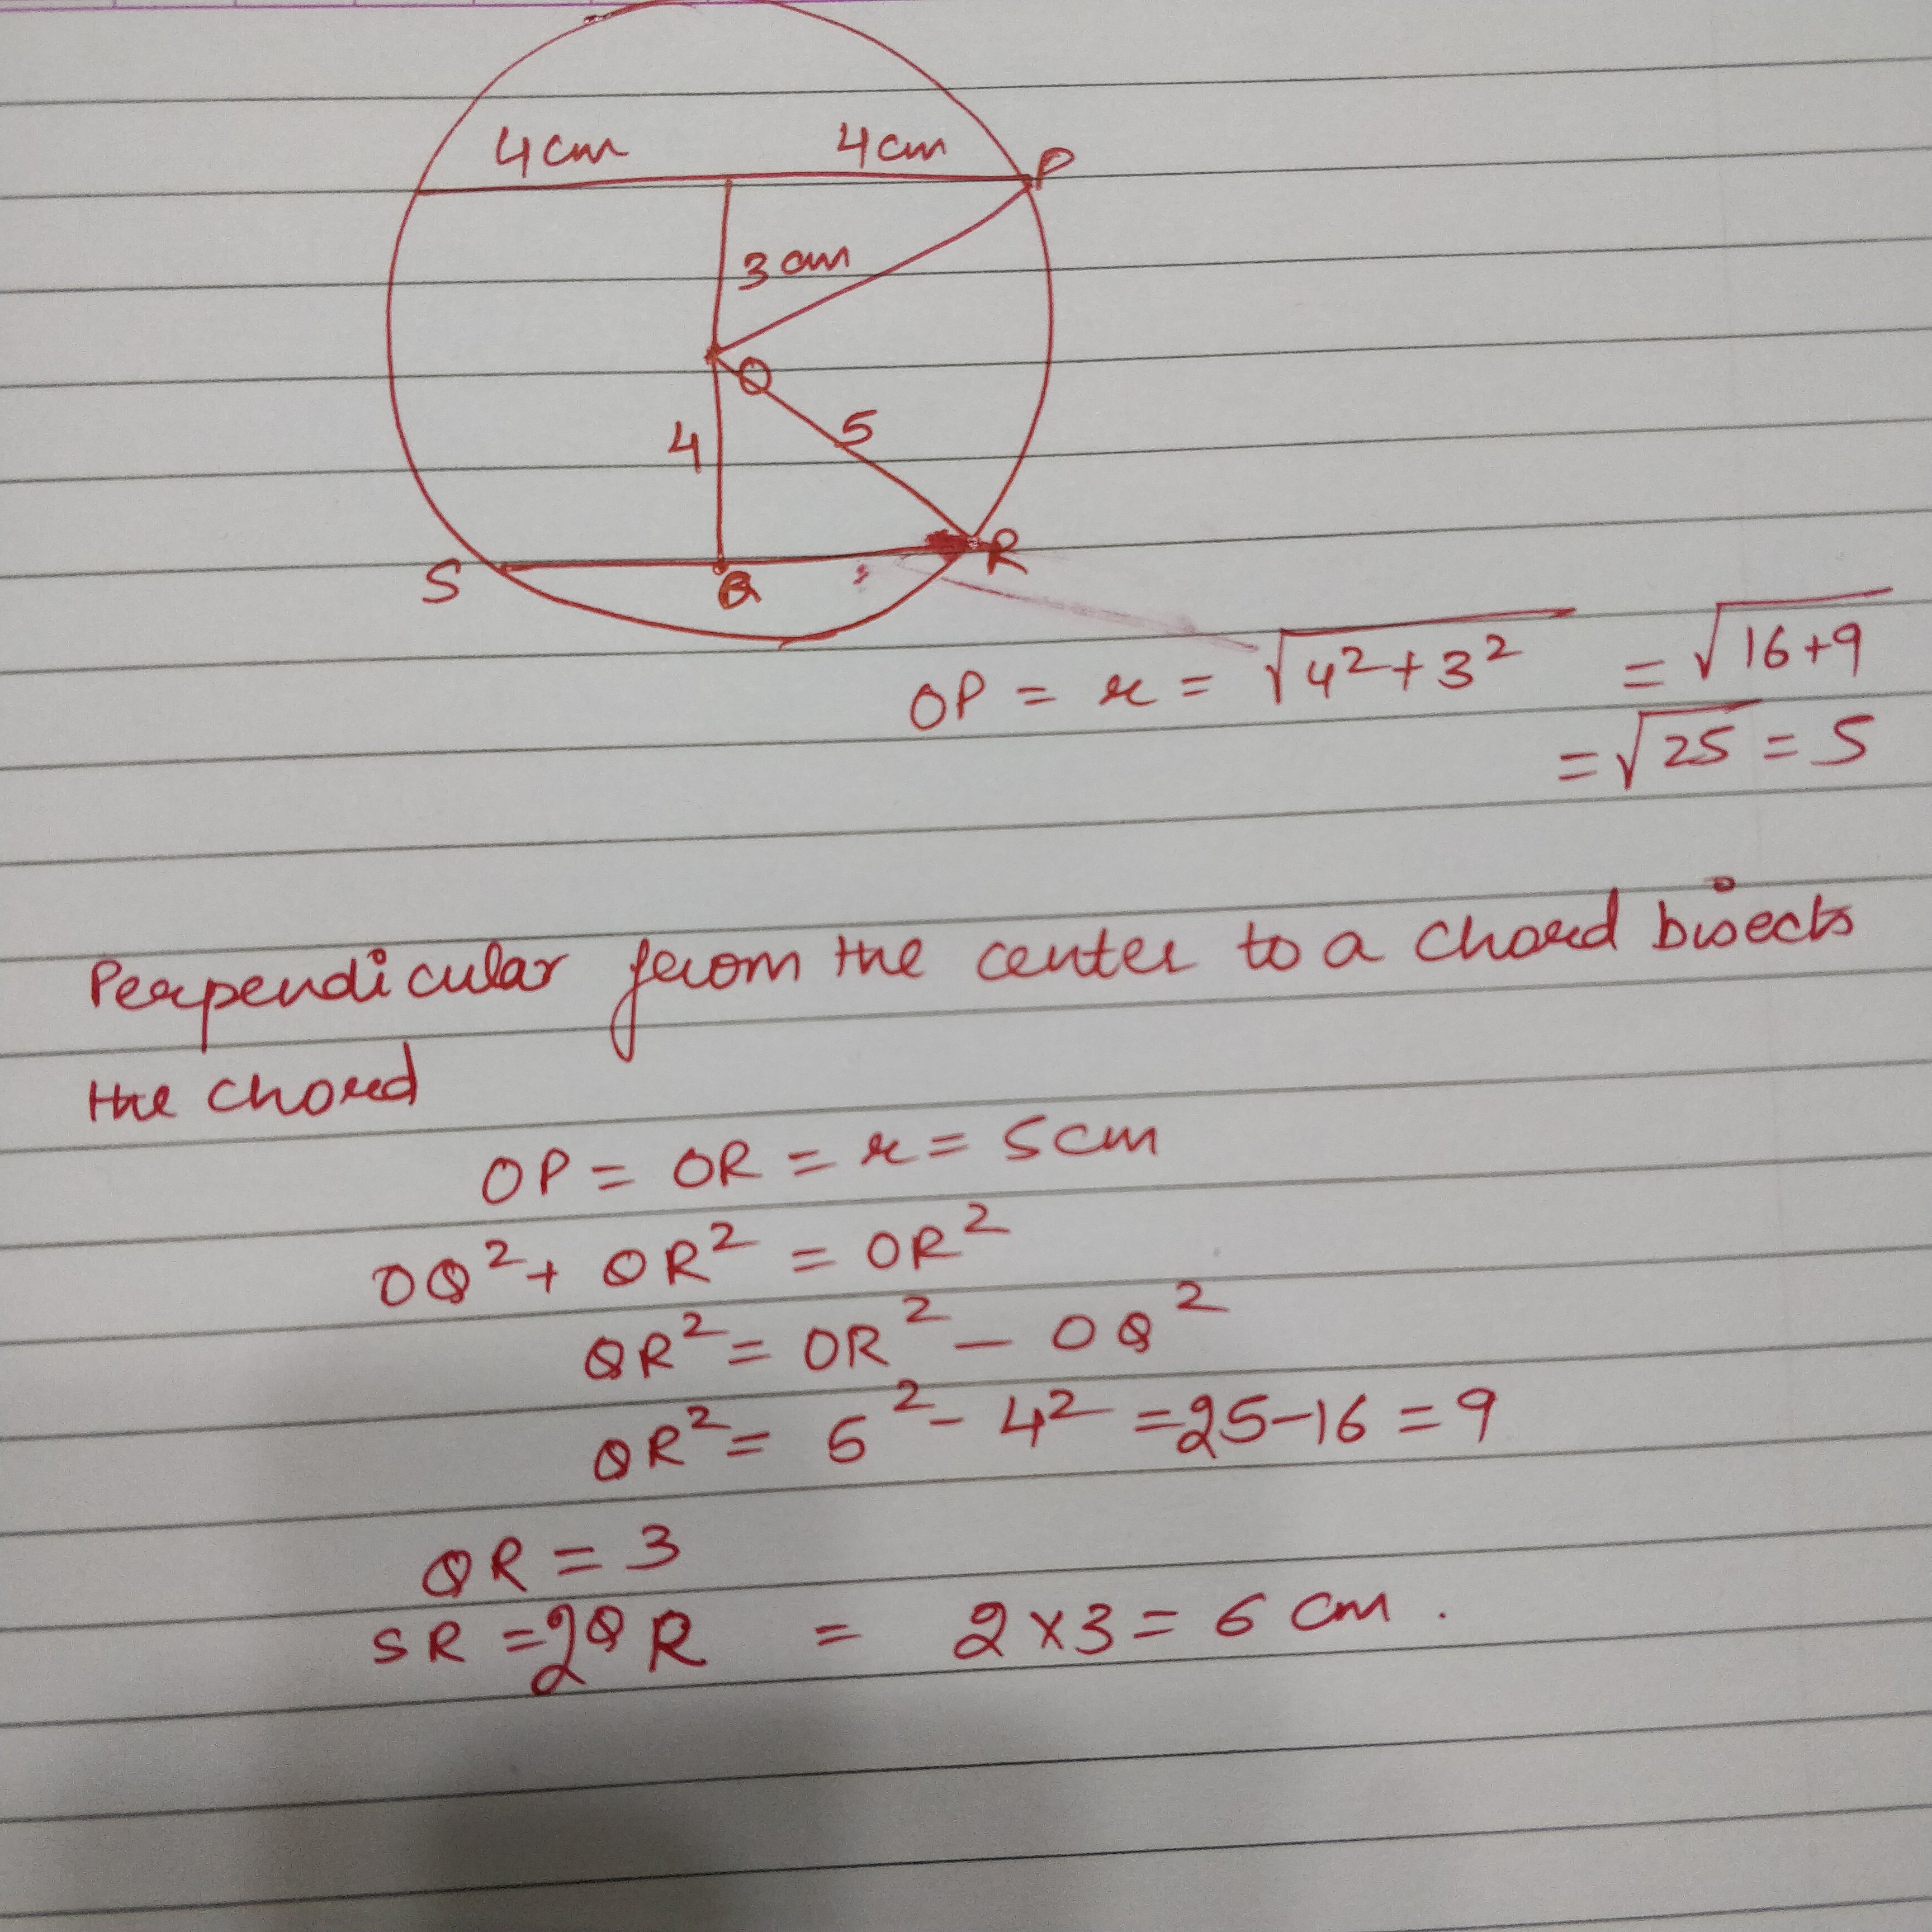 4cm 4cm P
3cm
O
4 5
S Q R
OP = r = √4²+3² = √16+9
= √25 = 5
Perpendicular from the center to a chord bisects
the chord
OP = OR = r = 5cm
OQ² + QR² = OR²
QR² = OR² – OQ²
QR² = 5² - 4² = 25-16 = 9
QR = 3
SR = 2QR = 2×3 = 6 cm.